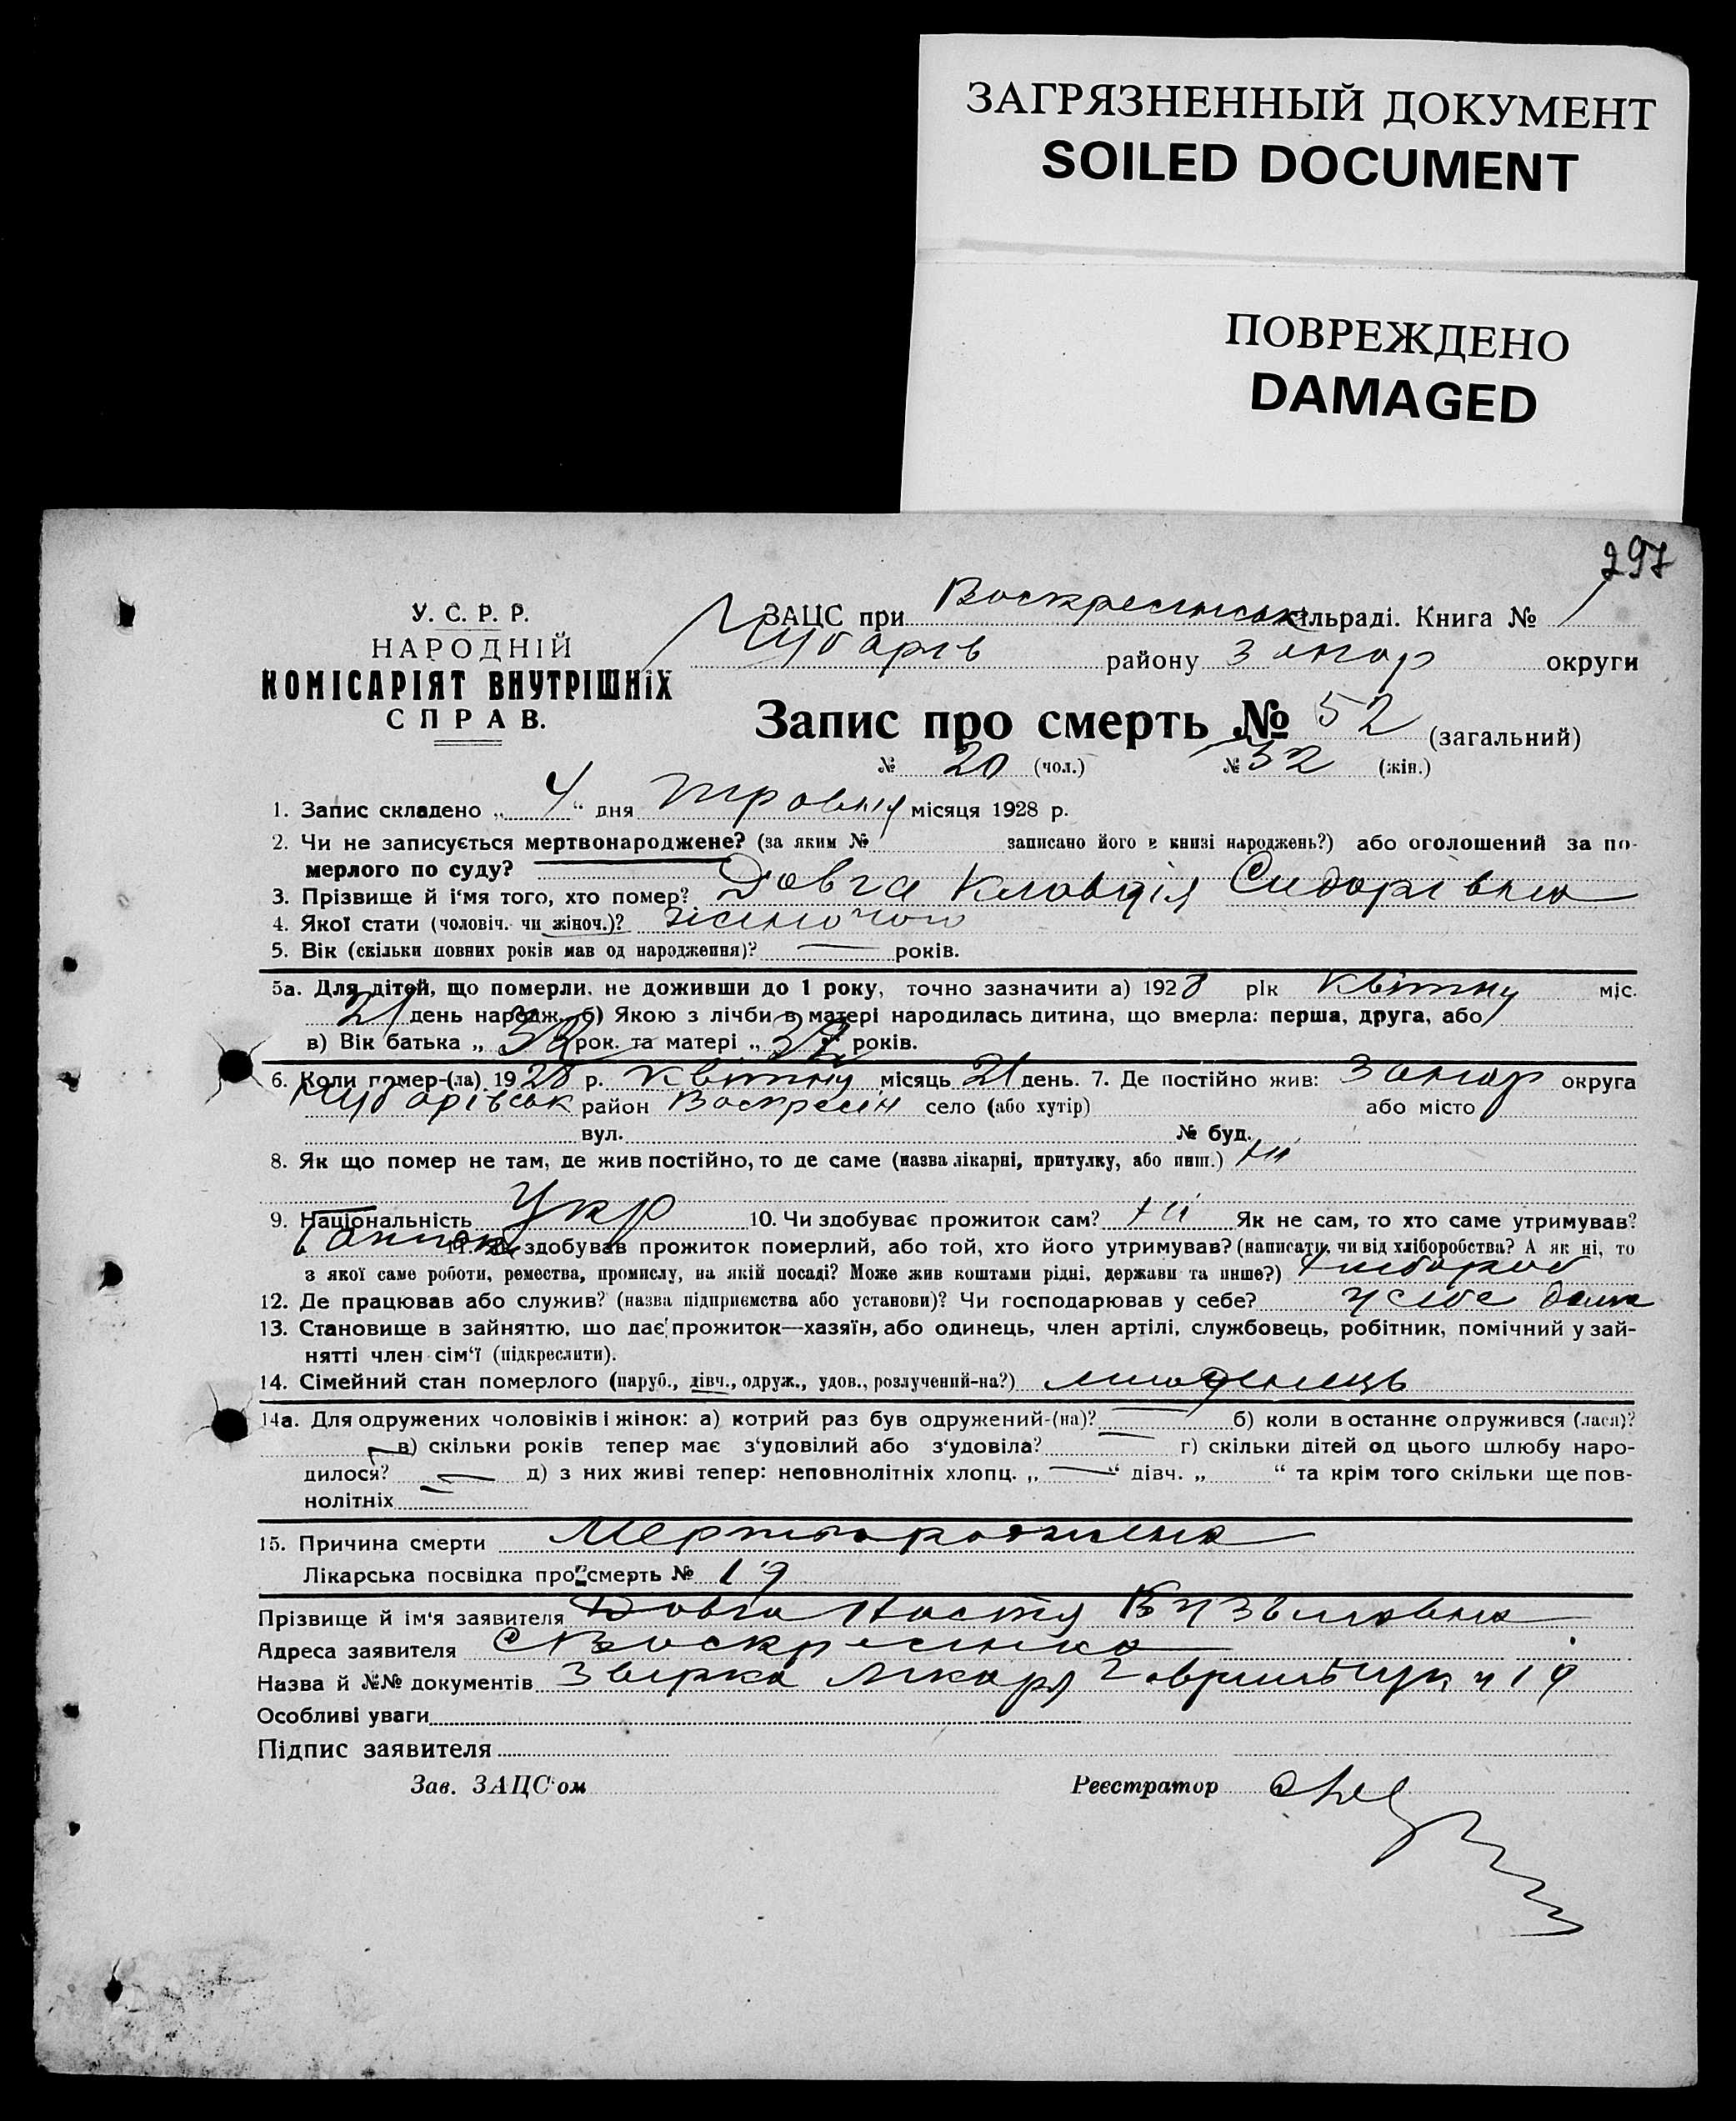 ЗАГРЯЗНЕННЫЙ ДОКУМЕНТ
SOILED DOCUMENT
ПОВРЕЖДЕНО
DAMAGED
297
У. С. Р. Р.
НАРОДНІЙ
КОМІСАРІЯТ ВНУТРІШНІХ
СПРАВ.
ЗАЦС при Воскресенськ сільраді. Книга № 1
Чубарів району Запор округи
Запис про смерть № 52 (загальний)
№ 20 (чол.) № 32 (жін.)
1. Запис складено „ 4 “ дня травня місяця 1928 р.
2. Чи не записується мертвонароджене? (за яким № записано його в книзі народжень?) або оголошений за по-
мерлого по суду?
3. Прізвище й і‘мя того, хто помер? Довга Клавдія Сидорівна
4. Якої стати (чоловіч. чи жіноч.)? жіночого
5. Вік (скільки повних років мав од народження)? — років.
5а. Для дітей, що померли, не доживши до 1 року, точно зазначити а) 1928 рік квітня міс.
21 день народж. б) Якою з лічби в матері народилась дитина, що вмерла: перша, друга, або
в) Вік батька „ 32 рок. та матері „ 32 років.
6. Коли помер-(ла) 1928 р. квітня місяць 21 день. 7. Де постійно жив: Запор округа
Чубарівськ район Воскресін село (або хутір) або місто
вул. № буд.
8. Як що помер не там, де жив постійно, то де саме (назва лікарні, притулку, або инш.) ні
9. Національність Укр 10. Чи здобуває прожиток сам? ні Як не сам, то хто саме утримував?
батько 11. Як здобував прожиток померлий, або той, хто його утримував? (написати, чи від хліборобства? А як ні, то
з якої саме роботи, ремества, промислу, на якій посаді? Може жив коштами рідні, держави та инше?) хлібороб
12. Де працював або служив? (назва підприємства або установи)? Чи господарював у себе? у себе дома
13. Становище в зайняттю, що дає прожиток—хазяїн, або одинець, член артілі, службовець, робітник, помічний у зай-
нятті член сім‘ї (підкреслити).
14. Сімейний стан померлого (паруб., дівч., одруж., удов., розлучений-на?) младенець
14а. Для одружених чоловіків і жінок: а) котрий раз був одружений-(на)? — б) коли в останнє одружився (лася)?
— в) скільки років тепер має з‘удовілий або з‘удовіла? — г) скільки дітей од цього шлюбу наро-
дилося? — д) з них живі тепер: неповнолітніх хлопц. „ — “ дівч. „ “ та крім того скільки ще пов-
нолітніх —
15. Причина смерти Мертворожжена
Лікарська посвідка про смерть № 19
Прізвище й ім‘я заявителя Довга Настя
Адреса заявителя с Воскресенка
Назва й №№ документів лікаря ч 19
Особливі уваги
Підпис заявителя
Зав. ЗАЦС‘ом Реєстратор